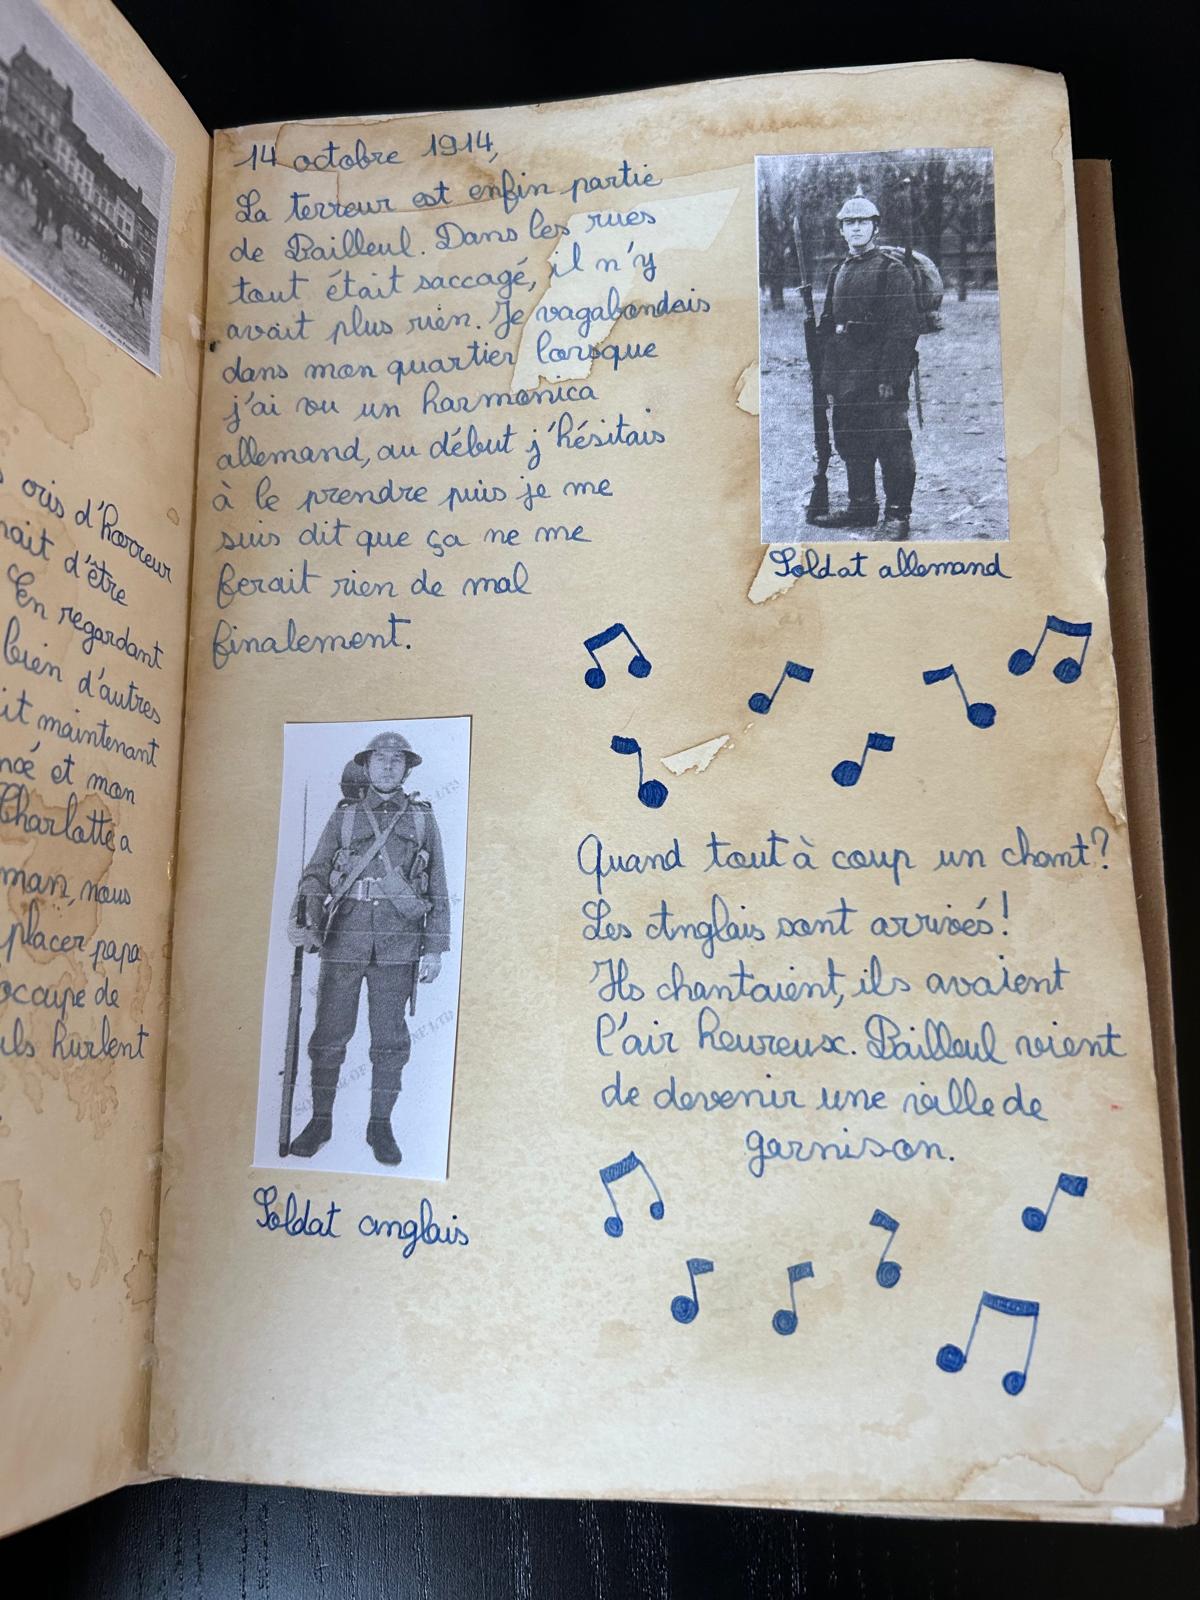 s cris d'horreur
nait d'être
En regardant
bien d'autres
it maintenant
et mon
Charlotte a
man, nous
placer papa
occupe de
ils hurlent
14 octobre 1914,
La terreur est enfin partie
de Bailleul. Dans les rues
tout était saccagé, il n'y
avait plus rien. Je vagabondais
dans mon quartier lorsque
j'ai vu un harmonica
allemand, au début j'hésitais
à le prendre puis je me
suis dit que ça ne me
ferait rien de mal
finalement.
Soldat allemand
Quand tout à coup un chant?
Les Anglais sont arrivés!
Ils chantaient, ils avaient
l'air heureux. Bailleul vient
de devenir une ville de
garnison.
Soldat anglais